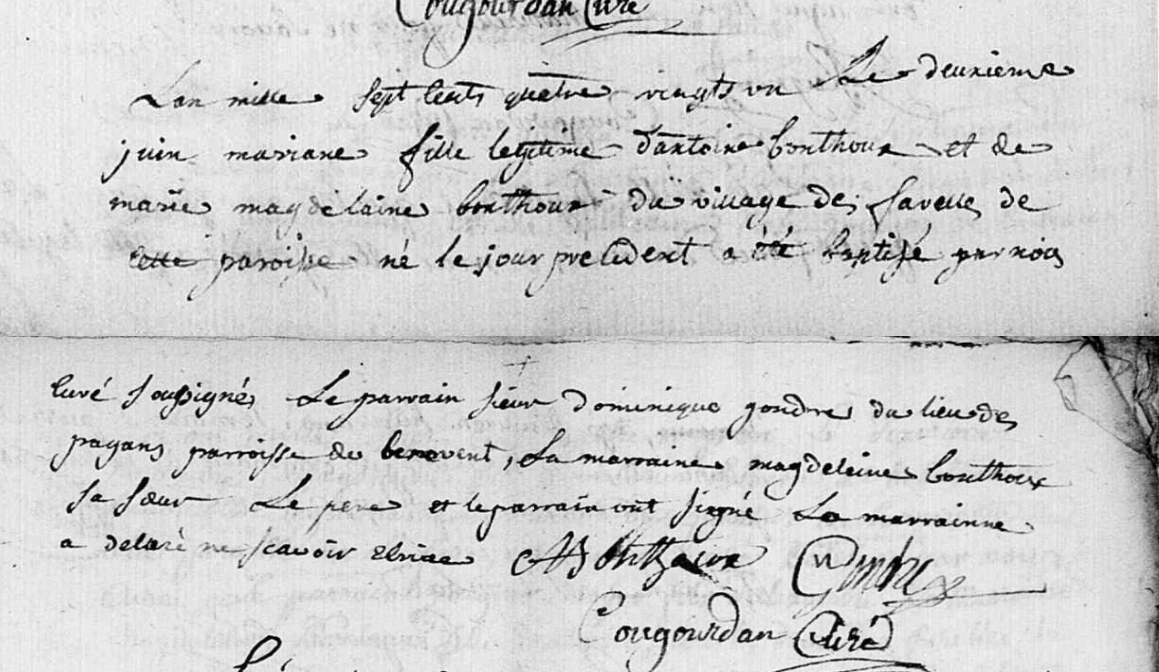 Cougourdan Curé
L'an mille sept cents quatre vingts un Le deuxieme
juin mariane fille legitime d'antoine bonthoux et de
marie magdelaine bonthoux du village des savelles de
cette paroisse né le jour precedent a été baptisé par nous
curé soussigné, Le parrain sieur dominique gondre du lieu des
pagans parroisse de benevent, La marraine magdeleine bonthoux
sa sœur Le pere et le parrain ont signé La marrainne
a delaré ne scavoir ecrire ABonthoux Gondre
Cougourdan Curé